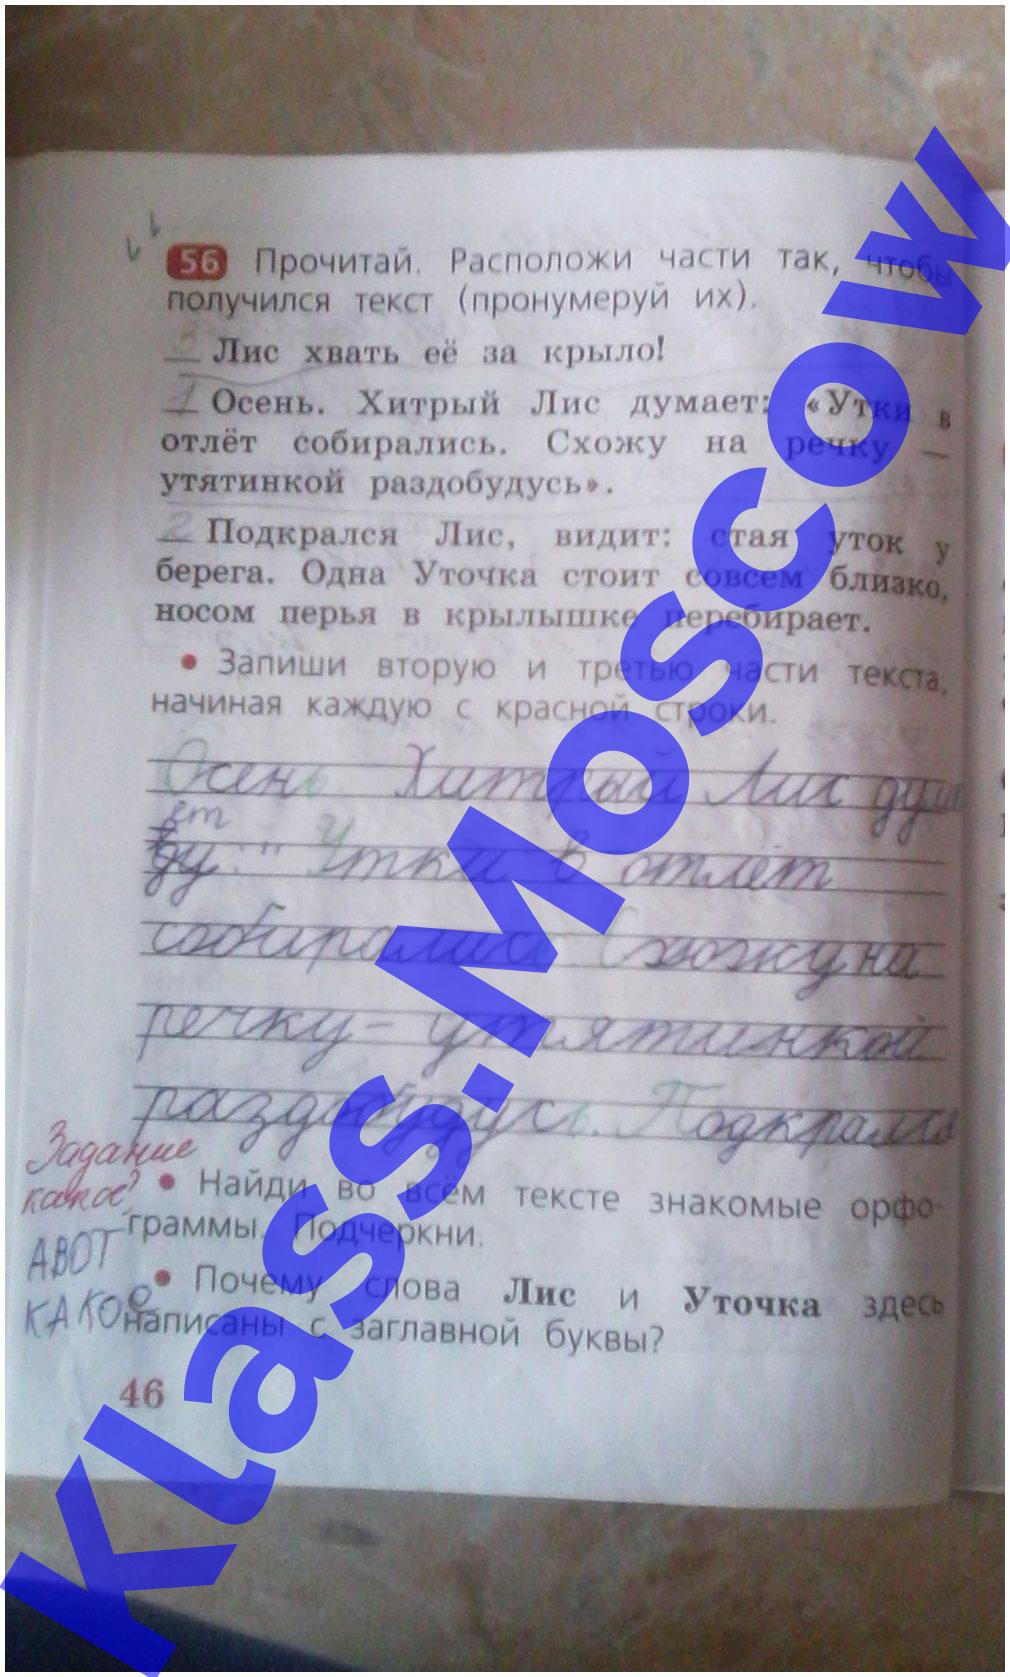 56 Прочитай. Расположи части так, чтобы
получился текст (пронумеруй их).
3 Лис хвать её за крыло!
1 Осень. Хитрый Лис думает: «Утки в
отлёт собирались. Схожу на речку —
утятинкой раздобудусь».
2 Подкрался Лис, видит: стая уток у
берега. Одна Уточка стоит совсем близко,
носом перья в крылышке перебирает.
• Запиши вторую и третью части текста,
начиная каждую с красной строки.
Осень. Хитрый Лис дума
ет
: " Утки в отлёт
собирались Схожу на
речку - утятинкой
раздобудусь. Подкрался
Задание
какое?
• Найди во всём тексте знакомые орфо-
граммы. Подчеркни.
АВОТ
КАКОЕ
• Почему слова Лис и Уточка здесь
написаны с заглавной буквы?
46
Klass.Moscow